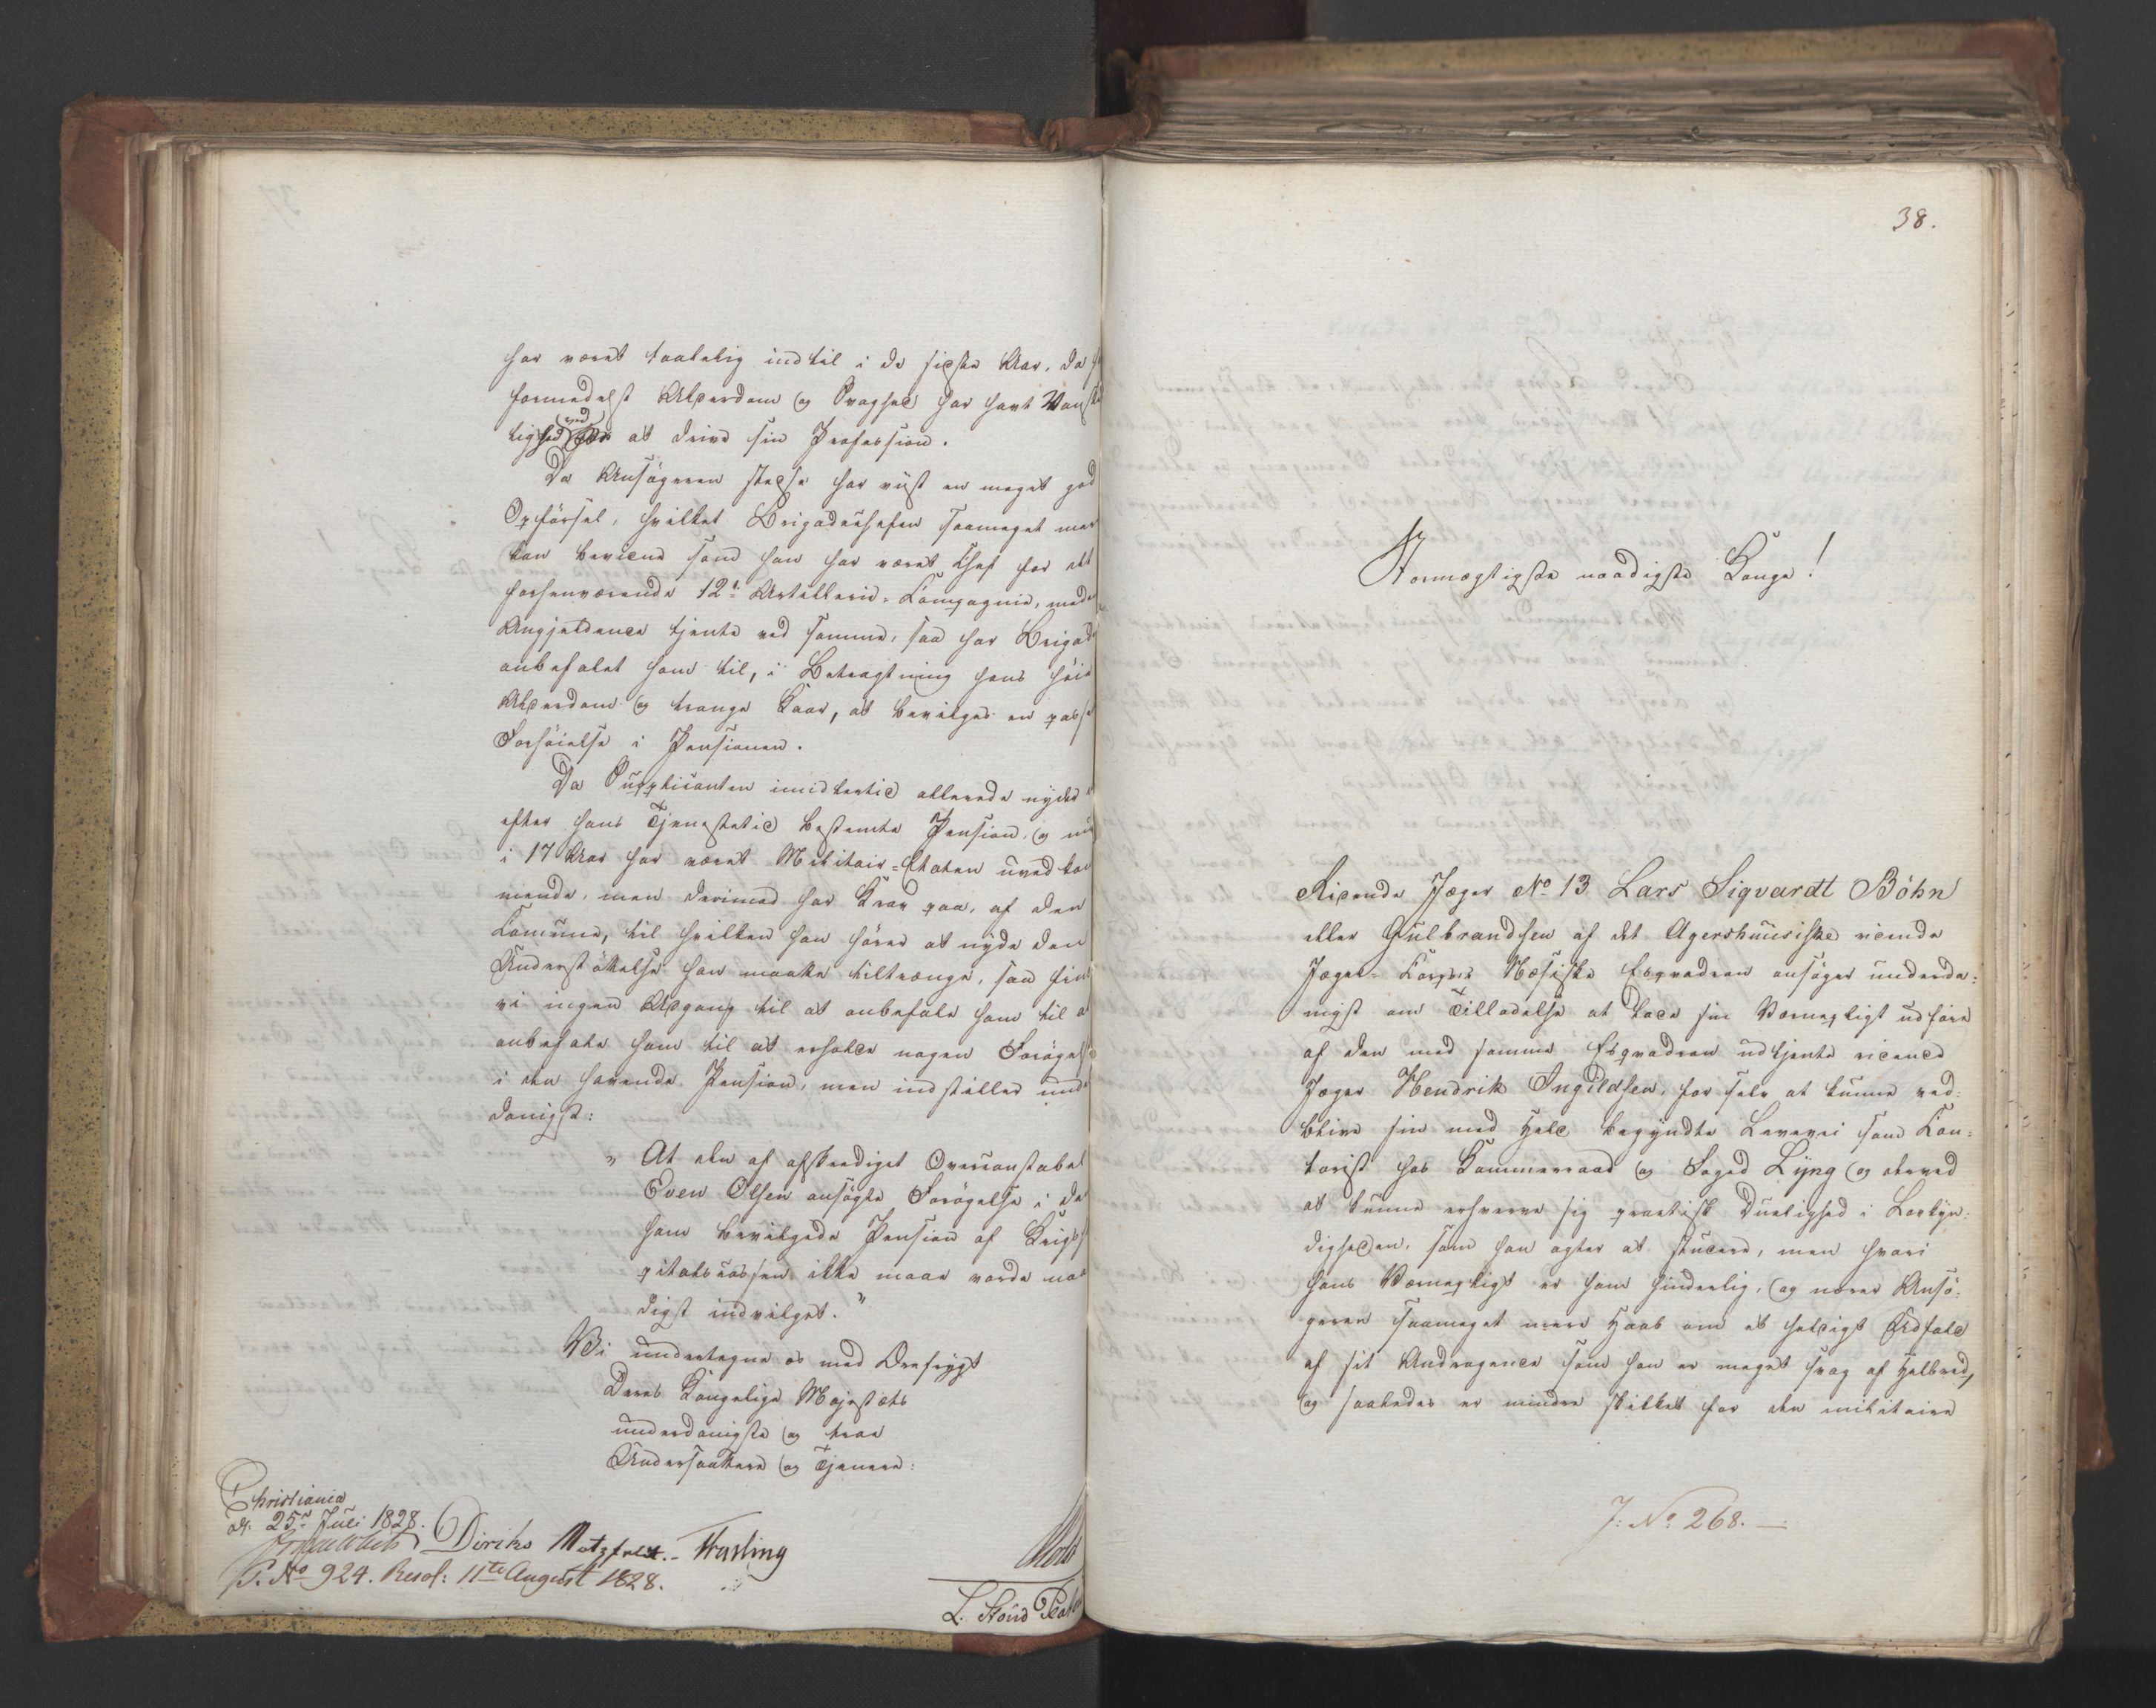 har været taalelig indtil i de sidste Aar, da
formedelst Alderdom og Svaghed har havt Vanske
lighed ved at drive sin Profession.
Da Ansøgeren stedse har viist en meget god
Opførsel, hvilket Brigadechefen saameget mer
kan bevidne som han har været Chef for det
forhenværende 12te Artillerie-Compagnie, med
Angjeldende tjente ved samme, saa har Brigad
anbefalet ham til, i Betragtning hans høie
Alderdom og trange Kaar, at bevilges en pass
Forhøielse i Pensionen.
Da Supplicanten imidlertid allerede nyder
efter hans Tjenestetid bestemte Pension, og nu
i 17 Aar har været Militair-Etaten uvedkom
mende, men derimod har Krav paa, af den
Comune, til hvilken han hører at nyde den
Understøttelse han maatte tiltrænge, saa fin
vi ingen Adgang til at anbefale ham til a
anbefale ham til at erholde nogen Forøgelse
i den havende Pension, men indstiller unde
danigst:
" At den af afskediget Overconstabel
Even Olsen ansøgte Forøgelse i de
ham bevilgede Pension af Krigsh
pitalscassen ikke maae vorde naa
digst indvilget."
Vi undertegne os med Ærefrygt
Deres Kongelige Majestæts
underdanigste og troe
Undersaattere og Tjenere:
Christiania
d. 25de Juli 1828.
Diriks Motzfeldt. Fasting
P. No 924. Resol: 11te August 1828.
Holst
L. Stoud Plat
38.
Stormægtigste naadigste Konge!
Ridende Jæger No 13 Lars Siqvardt Böhn
eller Gulbrandsen af det Agershuusiske ridende
Jæger-Corpses Næsiske Esqvadron ansøger underda-
nigst om Tilladelse at lade sin Værnepligt udføre
af den med samme Esqvadron udtjente ridende
Jæger Hendrik Ingildsen, for selv at kunne ved-
blive sin med Held begyndte Levevei som Con-
torist hos Kammerraad og Foged Lyng og derved
at kunne erhverve sig practisk Duelighed i Lovkyn-
digheden, som han agter at studere, men hvori
hans Værnepligt er ham hinderlig, og nærer Ansø-
geren saameget mere Haab om et heldigt Udfald
af sit Andragende som han er meget svag af Helbred,
og saaledes er mindre skikket for den militaire
J: No 268.